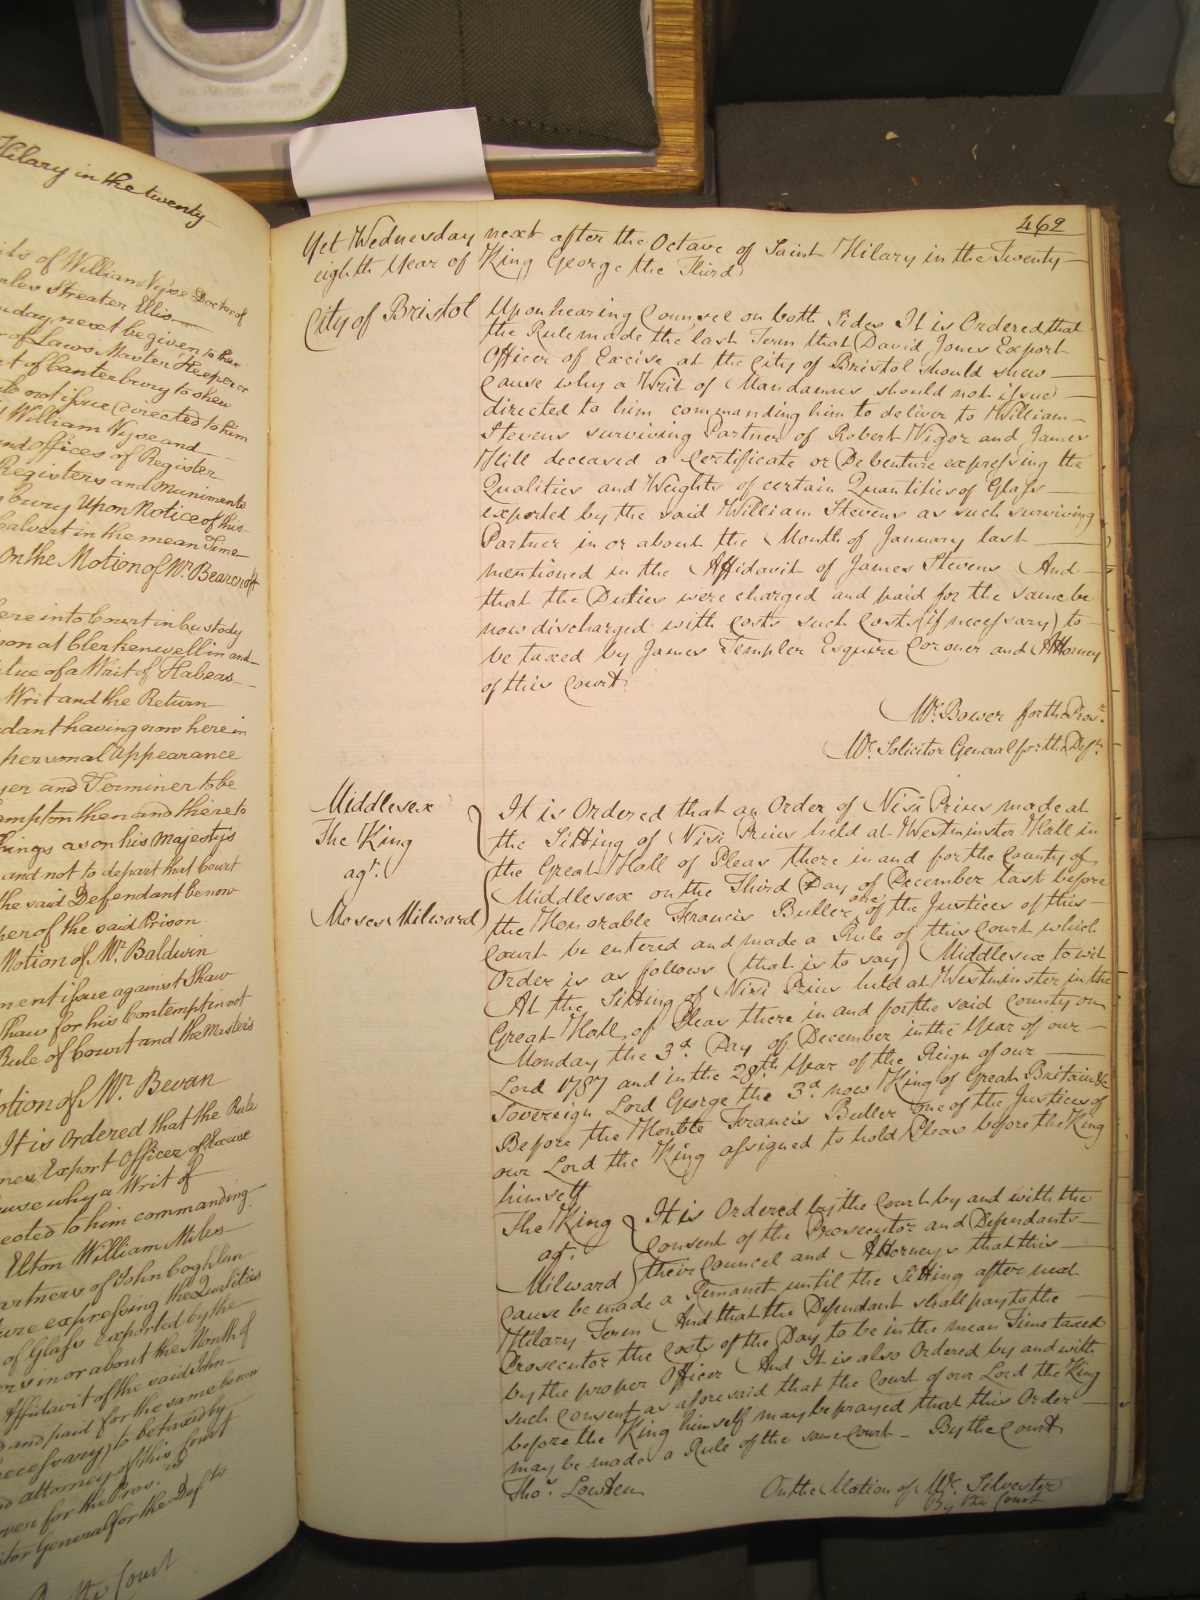 Hilary in the twenty
its of William Vyse Doctor of
rles Streater Ellis
day next be given to her
r of Laws Master Keeper or
t of Canterbury to shew
to not issue directed to him
William Vyse and
and offices of Register
Registers and Muniments
bury Upon Notice of this
Calvert in the mean Time
On the Motion of Mr. Bearcroft
ere into Court in Custody
son at Clerkenwell in and
tue of a Writ of Habeas
Writ and the Return
dant having now here in
personal Appearance
yer and Terminer to be
ampton then and there to
hings as on his Majesty's
and not to depart that Court
the said Defendant be now
per of the said Prison
Motion of Mr. Baldwin
ment issue against Shaw
Shaw for his Contempt in not
Rule of Court and the Master's
otion of Mr. Bevan
It is Ordered that the Rule
nes Export Officer of Excise
ause why a Writ of
ected to him commanding
Elton William Miles
artners of John Coghlan
ure expressing the Qualities
of Glass exported by the
ers in or about the Month of
Affidavit of the said John
d and paid for the same be now
necessary) to be taxed by
nd Attorney of this Court
wer for the Pros.rs
itor General for the Defts
By the Court
462
Yet Wednesday next after the Octave of Saint Hilary in the Twenty
eighth Year of King George the Third
City of Bristol
Upon hearing Counsel on both Sides It is Ordered that
the Rule made the last Term that David Jones Export
Officer of Excise at the City of Bristol should shew
Cause why a Writ of Mandamus should not issue
directed to him commanding him to deliver to William
Stevens surviving Partner of Robert Vigor and James
Hill deceased a Certificate or Debenture expressing the
Qualities and Weights of certain Quantities of Glass
exported by the said William Stevens as such surviving
Partner in or about the Month of January last
mentioned in the Affidavit of James Stevens And
that the Duties were charged and paid for the same be
now discharged with Costs such Costs (if necessary) to
be taxed by James Templer Esquire Coroner and Attorney
of this Court
Mr. Bower for the Pros.r
Mr. Solicitor General for the Def.t
Middlesex
The King
agt.
Moses Milward
It is Ordered that an Order of Nisi Prius made at
the Sitting of Nisi Prius held at Westminster Hall in
the Great Hall of Pleas there in and for the County of
Middlesex on the Third Day of December last before
the Honorable Francis Buller one of the Justices of this
Court be entered and made a Rule of this Court which
Order is as follows (that is to say) Middlesex to wit
At the Sitting of Nisi Prius held at Westminster in the
Great Hall of Pleas there in and for the said County on
Monday the 3d. Day of December in the Year of our
Lord 1787 and in the 28th Year of the Reign of our
Sovereign Lord George the 3.d now King of Great Britain &c
Before the Honble Francis Buller one of the Justices of
our Lord the King assigned to hold Pleas before the King
himself
The King
agt.
Milward
It is Ordered by the Court by and with the
Consent of the Prosecutor and Defendants
their Council and Attorneys that this
Cause be made a Remanet until the Sitting after next
Hilary Term And that the Defendant shall pay to the
Prosecutor the Costs of the Day to be in the mean Time taxed
by the proper Officer And It is also Ordered by and with
such Consent as aforesaid that the Court of our Lord the King
before the King himself may be prayed that this Order
may be made a Rule of the same Court - By the Court
Thos. Lowten
On the Motion of Mr. Silvester
By the Court